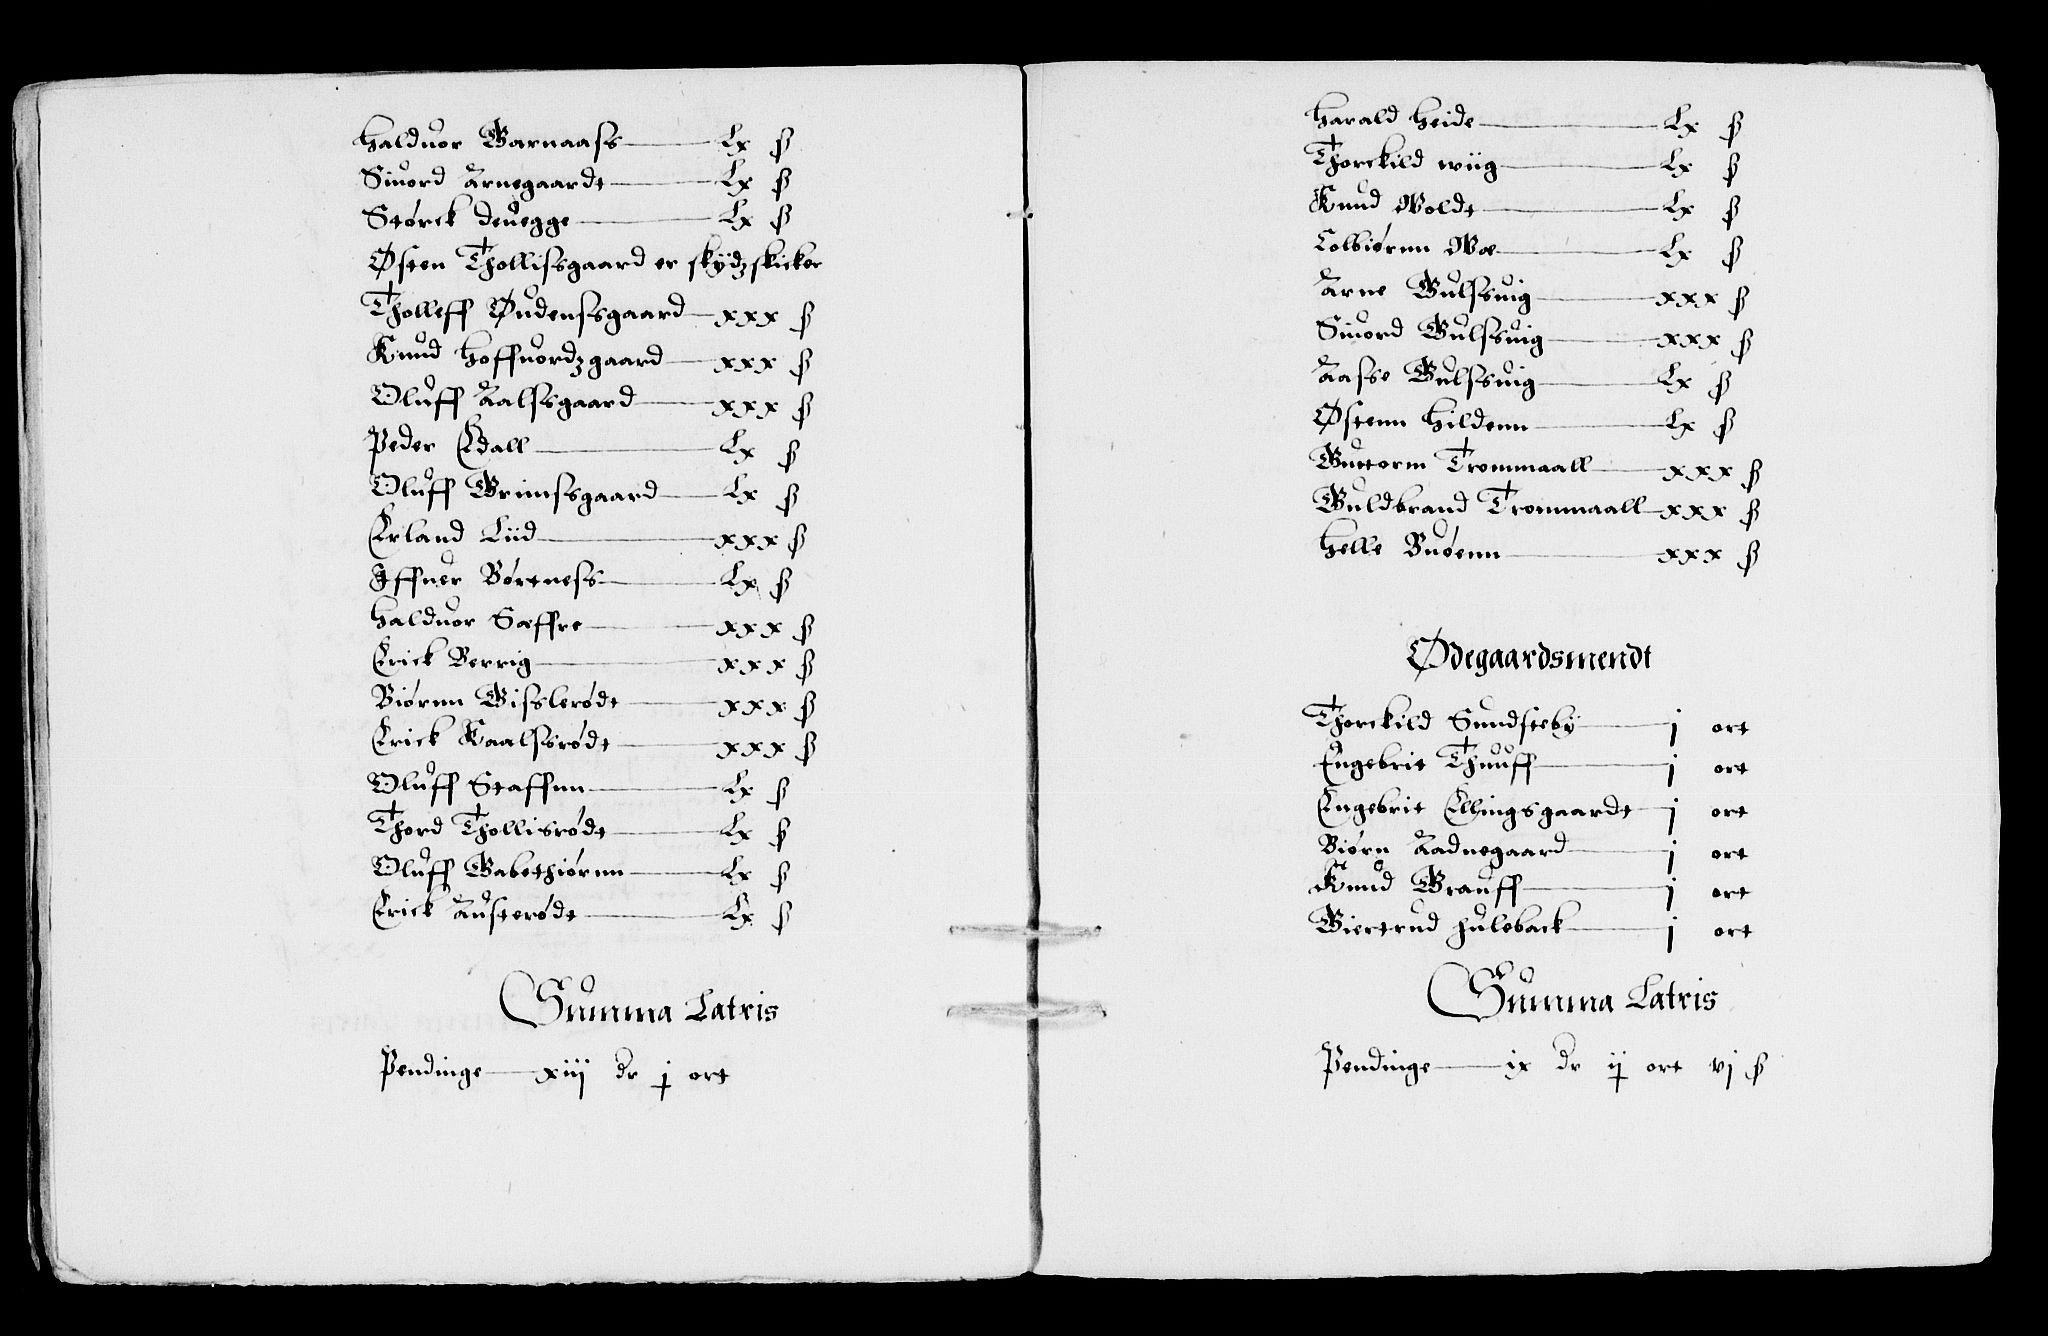 Halduor Garnaass — Lx ß
Siuord Arnegaardt — Lx ß
Størck deuegge — Lx ß
Østen Thollissgaard er skydzskicker
Tholleff Øudenssgaard — xxx ß
Knud Hoffuordzgaard — xxx ß
Oluff Aalssgaard — xxx ß
Peder Edall — Lx ß
Oluff Grimssgaard — Lx ß
Erland Liid — xxx ß
Iffuer Børtness — Lx ß
Halduor Sæffre — xxx ß
Erick Berrig — xxx ß
Biørnn Gisslerødt — xxx ß
Erick Kaalssrødt — xxx ß
Oluff Staffnn — Lx ß
Thord Thollisrødt — Lx ß
Oluff Gabethiørnn — Lx ß
Erick Austerødt — Lx ß
Summa Latris
Pendinge — xiij dr j ort
Harald Heide — Lx ß
Thorckild wiig — Lx ß
Knud Woldt — Lx ß
Colbiørnn Woe — Lx ß
Arne Gulssuig — xxx ß
Siuord Gulssuig — xxx ß
Aasse Gulssuig — Lx ß
Østenn Hildenn — Lx ß
Guttorm Trommaall — xxx ß
Guldbrand Trommaall — xxx ß
Helle Buøenn — xxx ß
Ødegaardsmendt
Thorckild Sundsteby — j ort
Engebrit Thuuff — j ort
Engebrit Ellingsgaardt — j ort
Biørn Aadnegaard — j ort
Knud Grauff — j ort
Giertrud Huleback — j ort
Summa Latris
Pendinge — ix dr ij ort vj ß